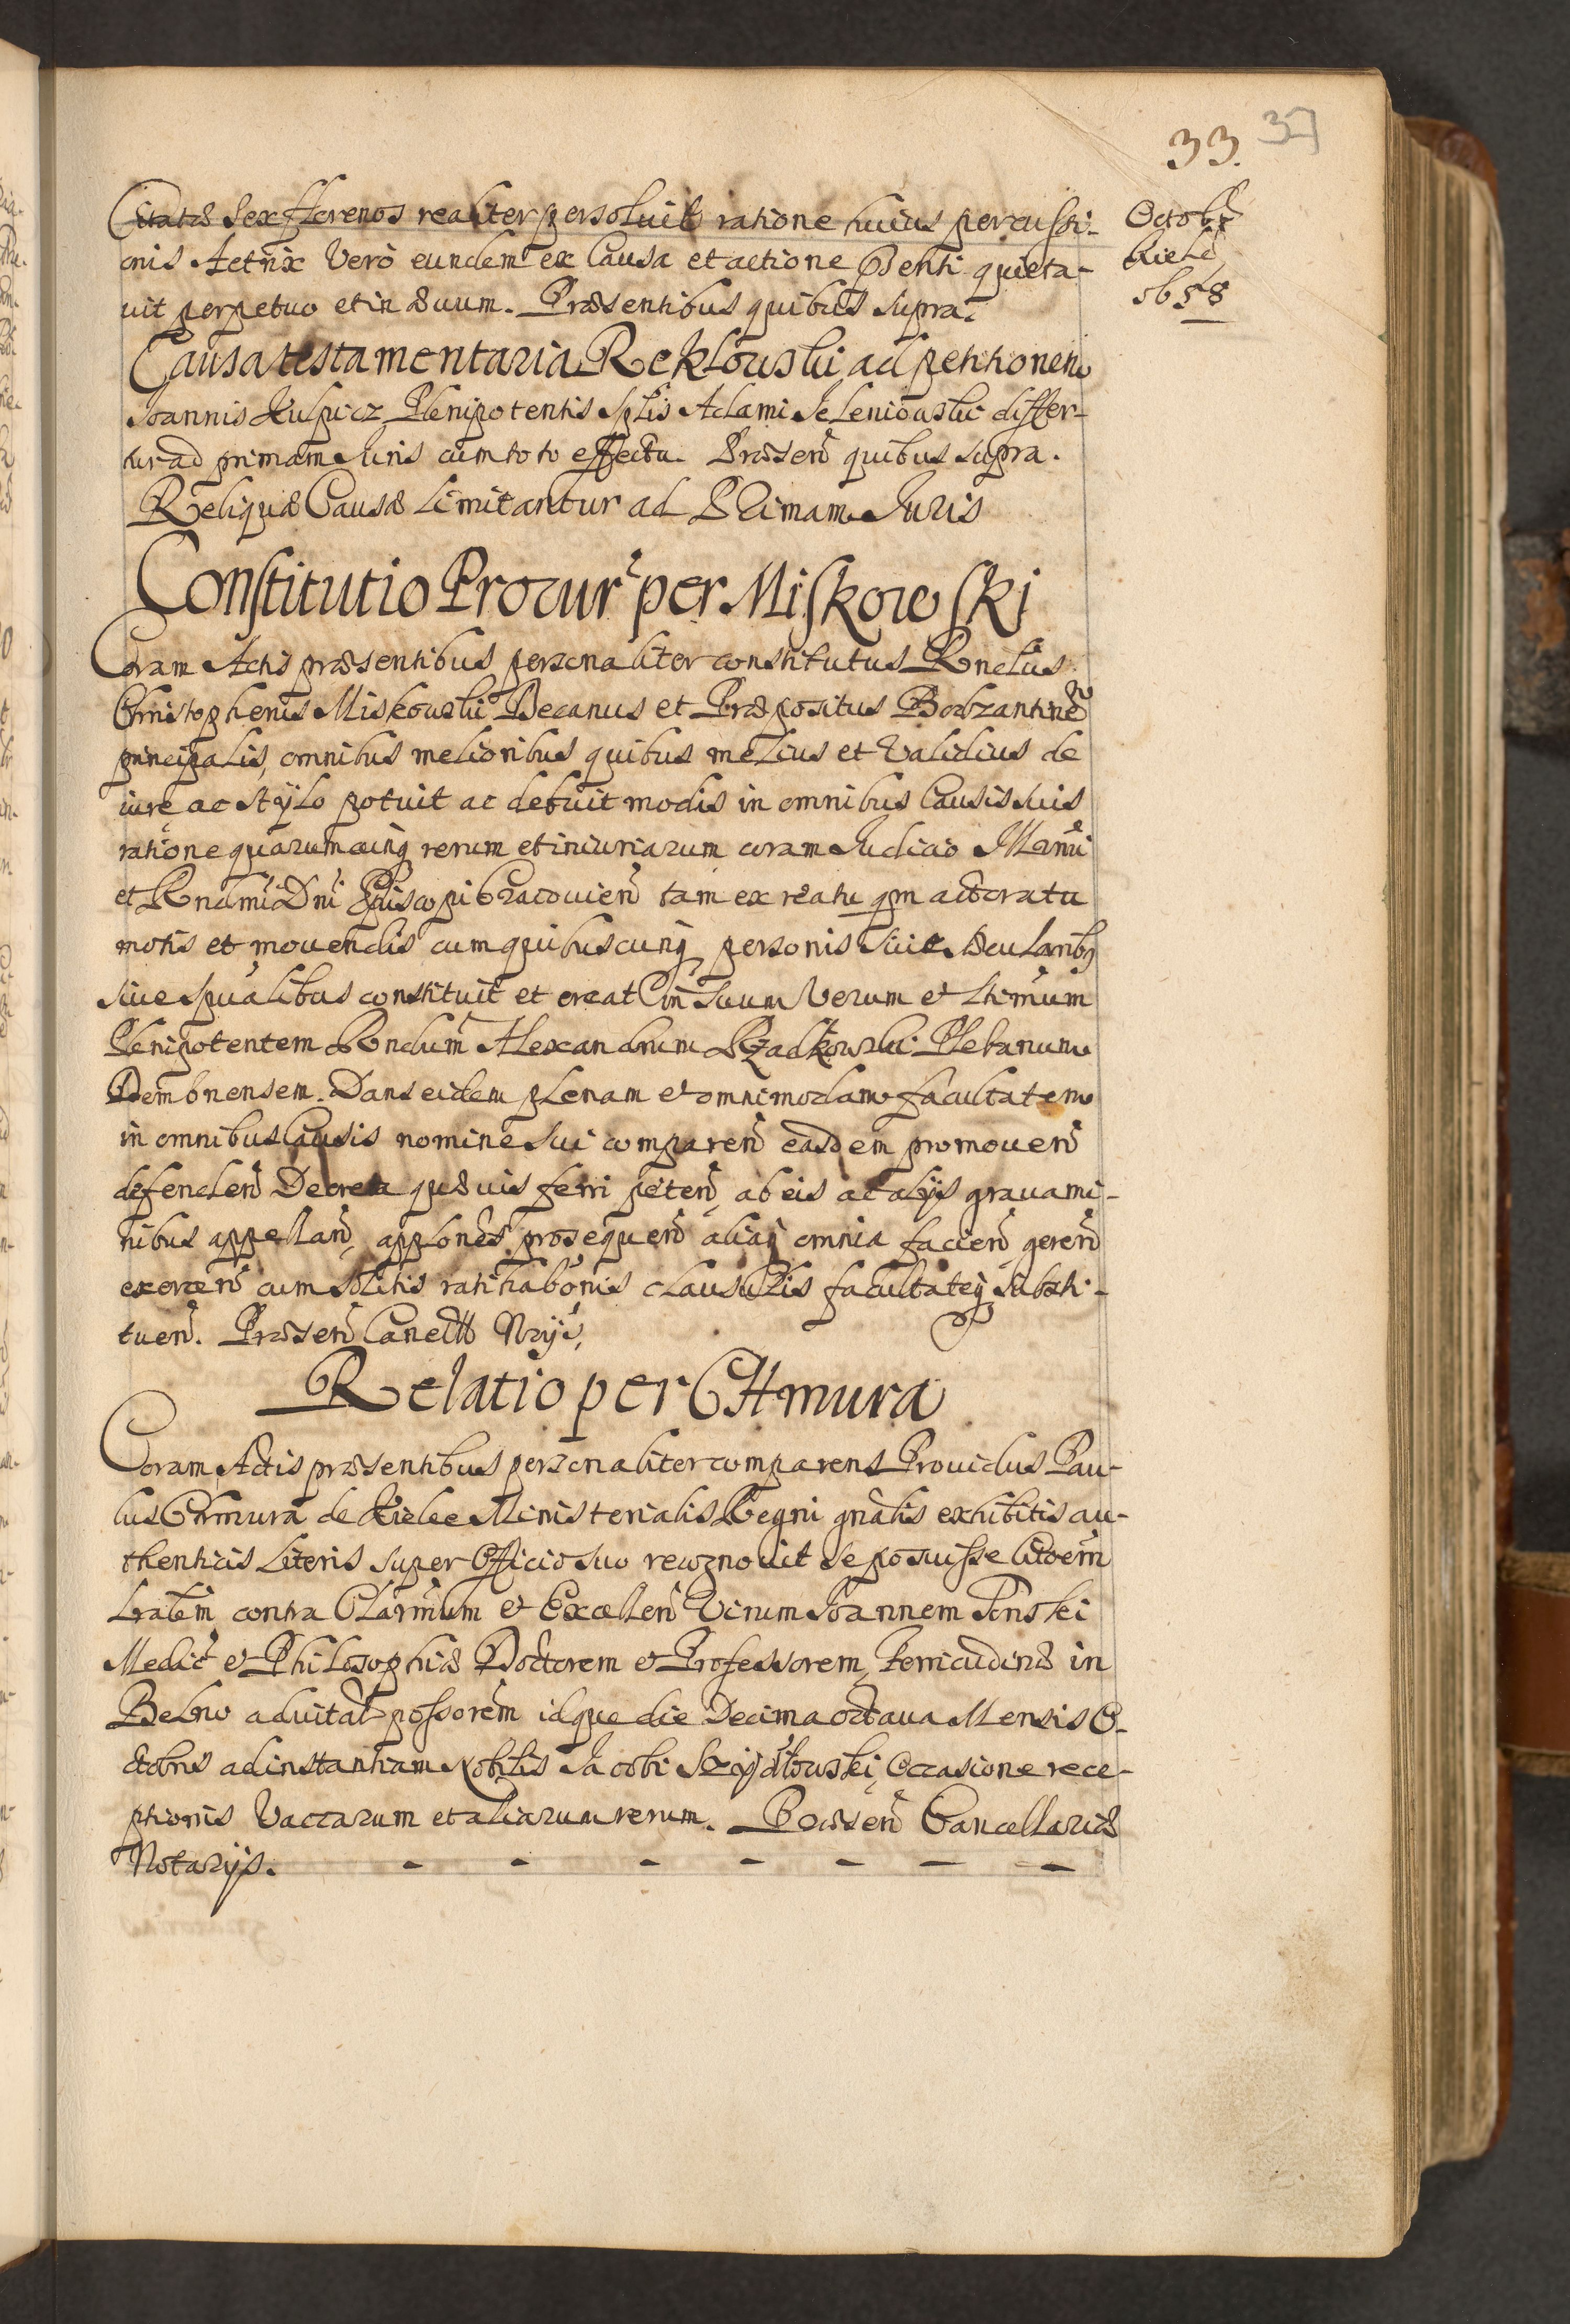 33. 37
Octobr
Kielc
1658
Citatus sex fflorenos realiter persoluit ratione huius percussi-
onis Actrix Vero eundem ex Causa et actione Debiti quieta-
uit perpetuo et in æuum. Præsentibus quibus supra.
Causa testamentaria Reklowski ad petitionem
Joannis Kulpicz Plenipotentis Sptlis Adami Jeleniowski differ-
tur ad primam Juris cum toto effectu. Præsen quibus supra.
Reliquæ Causæ limitantur ad Primam Juris
Constitutio Procur per Miskowski
Coram Actis præsentibus personaliter constitutus Rndus
Christopherus Miskowski Decanus et Præpositus Bodzantinen
principalis, omnibus melioribus quibus melius et validius de
iure ac stylo potuit ac debuit modis in omnibus Causis suis
ratione quarumcunq rerum et iniuriarum coram Judicio Illmi
et Rndmi Dni Episcopi Cracouien tam ex reatu qm actoratu
motis et mouendis cum quibuscunq personis siue sæcularibq
siue spualibus constituit et creat in suum Verum et Ltimum
Plenipotentem Rndum Alexandrum Rzadkowski Plebanum
Dembnensem. Dans eidem plenam et omnimodam facultatem
in omnibus Causis nomine sui comparen easdem promouen
defenden Decreta quæuis ferri peten, ab eis ac alijs grauami-
nibus appellan, applones prosequen aliaq omnia facien geren
exercen cum solitis ratihabonis clausulis facultateq substi-
tuen. Præsen Canctt Nrijs,
Relatio per CHmura
Coram Actis præsentibus personaliter comparens Prouidus Pau-
lus Chmura de Kielce Ministerialis Regni gnalis exhibitis au-
thenticis Literis super Officio suo recognouit se posuisse citoem
lratem contra Clarmum et Excellen Virum Joannem Tonski
Medic et Philosophiæ Doctorem et Professorem, Ferricudinæ in
Belno aduital possorem idque die Decima octaua Mensis O-
ctobris ad instantiam Nobilis Jacobi Szydłowski, Occasione rece-
ptionis Vaccarum et aliarum rerum. Præsen Cancellariæ
Notarijs. - - - - - - -